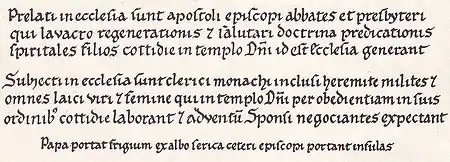 Prelati in ecclesia sunt apostoli episcopi abbates et presbyteri
qui lavacro regenerationis ⁊ salutari doctrina predicationis
spiritales filios cottidie in templo Dn̄i id est Ecclesia generant
Subjecti in ecclesia sunt clerici monachi inclusi heremite milites ⁊
omnes laici viri ⁊ femine qui in templo Dn̄i per obedientiam in suis
ordinibꝰ cottidie laborant ⁊ adventū Sponsi negociantes expectant
Papa portat frigium ex albo serica ceteri episcopi portant insulas